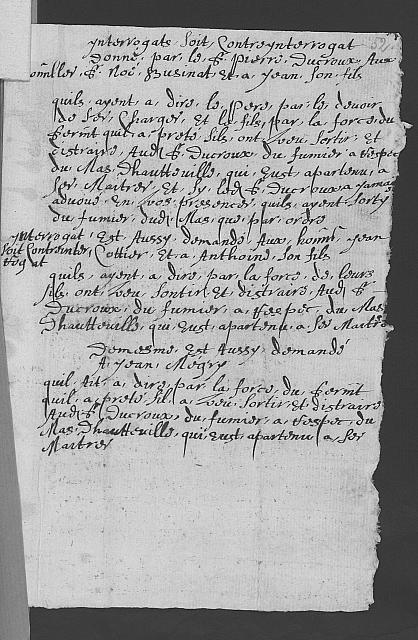 ynterrogats Soit Contreynterrogat 52
donné, par le Sr Pierre, Ducroux, Aux
honnestes Sr Noé, Businat et a Jean, Son fils
quils ayent, a dire, le Pere, par le devoir
de Ses Charges, et le fils, par la force, du
Sermt quil, a preté, Sils, ont, veu, Sortir, et
distraire, Audt Sr Ducroux, du fumier, a respec,
du Mas, Dhautteville, qui, eust, apartenu, a
Ses Maitres, et Sy ledt Sr Ducroux, a Jamais
advoué, en, vos, presences, quils, ayent, Sorty
du fumier, dudt Mas, que, par, ordre
ynterrogat, Est Aussy, demandé, Aux, honnes, Jean
Soit Contreinter Cottier, et, a, Anthoine, Son fils
rogat
quils, ayent, a dire, par, la force, de, leurs
Sils, ont, veu, Sortir, et, distraire, Audt Sr
Ducroux, du, fumier, a, respec, du, Mas,
Dhautteville, qui, eust, apartenu, a, Ses Maitres
Demesme, Est Aussy, demandé
A, Jean, Megry
quil, ait, a, dire, par, la force, du, Sermt
quil, a, preté, Sil, a, veu, Sortir, et, distraire
Audt Sr, Ducroux, du, fumier, a, respec, du
Mas, Dhautteville, qui, eust, apartenu, a, Ses
Maitres